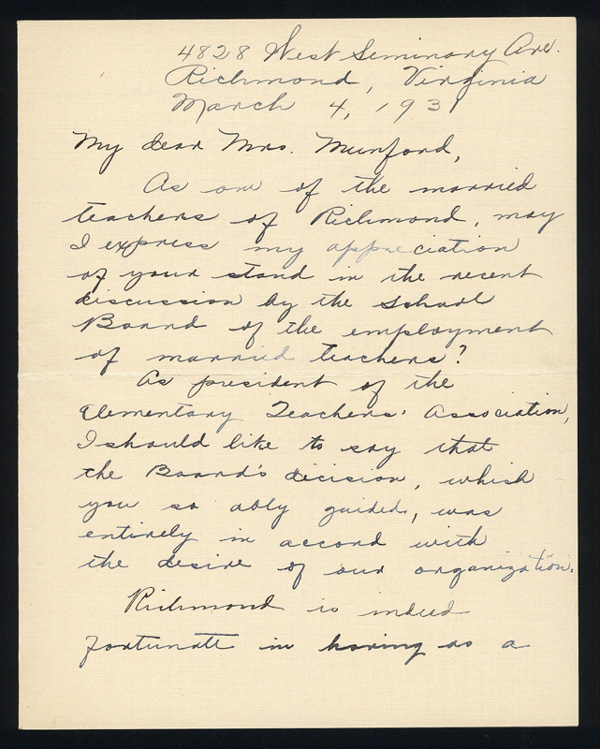 4828 West Seminary Ave.
Richmond, Virginia
March 4, 1931
My dear Mrs. Munford,
As one of the married
teachers of Richmond, may
I express my appreciation
of your stand in the recent
discussion by the School
Board of the employment
of married teachers?
As president of the
Elementary Teachers' Association,
I should like to say that
the Board's decision, which
you so ably guided, was
entirely in accord with
the desire of our organization.
Richmond is indeed
fortunate in having as a